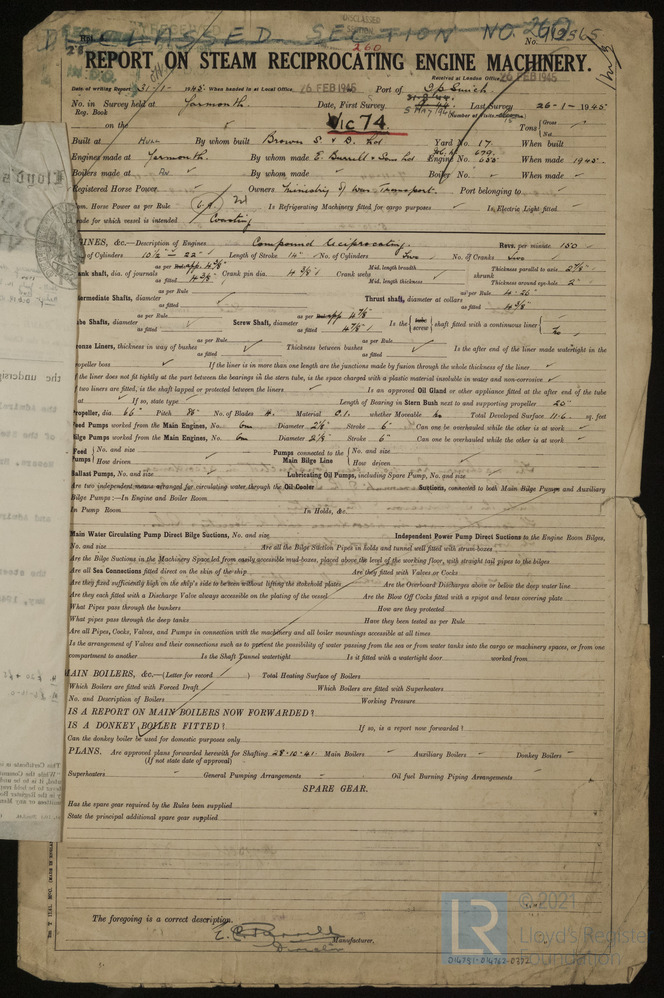 DISCLASSED SECTION NO. 260
DISCLASSED
SECTION
260
No.
REPORT ON STEAM RECIPROCATING ENGINE MACHINERY.
Received at London Office 26 FEB 1945
Date of writing Report 31-1-1945. When handed in at Local Office 26 FEB 1945 Port of Ipswich
No. in Survey held at Yarmouth. Date, First Survey Last Survey 26-1-1945
Reg. Book
(Number of Visits
on the VIC 74 Tons Gross
Net
Built at Hull By whom built Brown S. & B. Ltd Yard No. 17. When built
Engines made at Yarmouth. By whom made E. Burrell & Son Ltd Engine No. 655 When made 1945
Boilers made at By whom made Boiler No. When made
Registered Horse Power Owners Ministry of War Transport. Port belonging to
Nom. Horse Power as per Rule Is Refrigerating Machinery fitted for cargo purposes Is Electric Light fitted
Trade for which vessel is intended Coasting
ENGINES, &c.—Description of Engines Compound reciprocating. Revs. per minute 150
of Cylinders 10½" – 22" Length of Stroke 14" No. of Cylinders Two No. of Cranks Two
Crank shaft, dia. of journals as per Rule as fitted 4⅜" Crank pin dia. 4⅜" Crank webs Mid. length breadth Mid. length thickness shrunk Thickness parallel to axis 2⅞" Thickness around eye-hole 2"
Intermediate Shafts, diameter as per Rule as fitted Thrust shaft, diameter at collars as per Rule 4.26" as fitted 4⅜"
Tube Shafts, diameter as per Rule as fitted Screw Shaft, diameter as per Rule as fitted 4⅞" Is the tube screw shaft fitted with a continuous liner No
Bronze Liners, thickness in way of bushes as per Rule as fitted Thickness between bushes as per Rule as fitted Is the after end of the liner made watertight in the
propeller boss If the liner is in more than one length are the junctions made by fusion through the whole thickness of the liner
If the liner does not fit tightly at the part between the bearings in the stern tube, is the space charged with a plastic material insoluble in water and non-corrosive
If two liners are fitted, is the shaft lapped or protected between the liners Is an approved Oil Gland or other appliance fitted at the after end of the tube
shaft If so, state type Length of Bearing in Stern Bush next to and supporting propeller 20"
Propeller, dia. 66" Pitch 86" No. of Blades 4. Material C.I. whether Moveable No Total Developed Surface 11.6 sq. feet
Feed Pumps worked from the Main Engines, No. One Diameter 2⅛" Stroke 6" Can one be overhauled while the other is at work
Bilge Pumps worked from the Main Engines, No. One Diameter 2⅛" Stroke 6" Can one be overhauled while the other is at work
Feed Pumps No. and size How driven Pumps connected to the Main Bilge Line No. and size How driven
Ballast Pumps, No. and size Lubricating Oil Pumps, including Spare Pump, No. and size
Are two independent means arranged for circulating water through the Oil Cooler Suctions, connected to both Main Bilge Pumps and Auxiliary
Bilge Pumps:—In Engine and Boiler Room
In Pump Room In Holds, &c.
Main Water Circulating Pump Direct Bilge Suctions, No. and size Independent Power Pump Direct Suctions to the Engine Room Bilges,
No. and size Are all the Bilge Suction Pipes in holds and tunnel well fitted with strum-boxes
Are the Bilge Suctions in the Machinery Space led from easily accessible mud-boxes, placed above the level of the working floor, with straight tail pipes to the bilges
Are all Sea Connections fitted direct on the skin of the ship Are they fitted with Valves or Cocks
Are they fixed sufficiently high on the ship's side to be seen without lifting the stokehold plates Are the Overboard Discharges above or below the deep water line
Are they each fitted with a Discharge Valve always accessible on the plating of the vessel Are the Blow Off Cocks fitted with a spigot and brass covering plate
What Pipes pass through the bunkers How are they protected
What pipes pass through the deep tanks Have they been tested as per Rule
Are all Pipes, Cocks, Valves, and Pumps in connection with the machinery and all boiler mountings accessible at all times
Is the arrangement of Valves and their connections such as to prevent the possibility of water passing from the sea or from water tanks into the cargo or machinery spaces, or from one
compartment to another Is the Shaft Tunnel watertight Is it fitted with a watertight door worked from
MAIN BOILERS, &c.—(Letter for record ) Total Heating Surface of Boilers
Which Boilers are fitted with Forced Draft Which Boilers are fitted with Superheaters
No. and Description of Boilers Working Pressure
IS A REPORT ON MAIN BOILERS NOW FORWARDED?
IS A DONKEY BOILER FITTED? If so, is a report now forwarded?
Can the donkey boiler be used for domestic purposes only
PLANS. Are approved plans forwarded herewith for Shafting 28-10-41. Main Boilers Auxiliary Boilers Donkey Boilers
(If not state date of approval)
Superheaters General Pumping Arrangements Oil fuel Burning Piping Arrangements
SPARE GEAR.
Has the spare gear required by the Rules been supplied
State the principal additional spare gear supplied
The foregoing is a correct description.
Manufacturer,
Director
LR
© 2021
Lloyd's Register
Foundation
014751-014762-0372